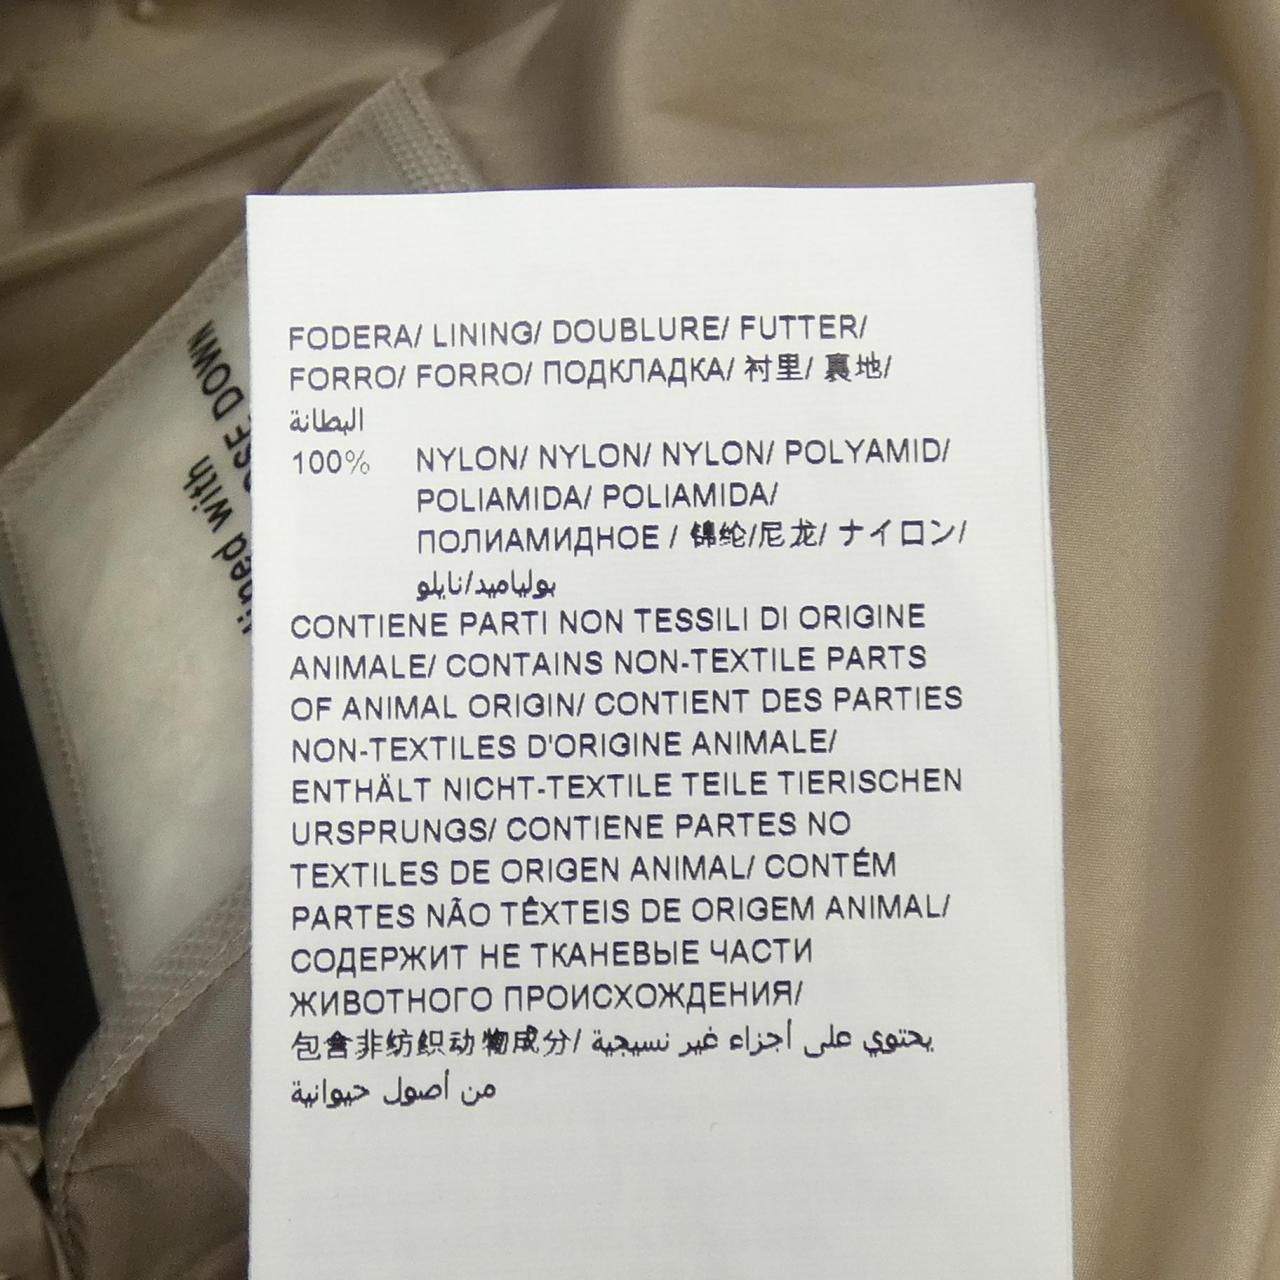 FODERA/ LINING/ DOUBLURE/ FUTTER/
FORRO/ FORRO/ ПОДКЛАДКА/ 衬里/ 裏地/
البطانة
100% NYLON/ NYLON/ NYLON/ POLYAMID/
POLIAMIDA/ POLIAMIDA/
ПОЛИАМИДНОЕ / 锦纶/尼龙/ ナイロン/
بولياميد/نايلو
CONTIENE PARTI NON TESSILI DI ORIGINE
ANIMALE/ CONTAINS NON-TEXTILE PARTS
OF ANIMAL ORIGIN/ CONTIENT DES PARTIES
NON-TEXTILES D'ORIGINE ANIMALE/
ENTHÄLT NICHT-TEXTILE TEILE TIERISCHEN
URSPRUNGS/ CONTIENE PARTES NO
TEXTILES DE ORIGEN ANIMAL/ CONTÉM
PARTES NÃO TÊXTEIS DE ORIGEM ANIMAL/
СОДЕРЖИТ НЕ ТКАНЕВЫЕ ЧАСТИ
ЖИВОТНОГО ПРОИСХОЖДЕНИЯ/
包含非纺织动物成分/ يحتوي على أجزاء غير نسيجية
من أصول حيوانية
lined with
DOWN